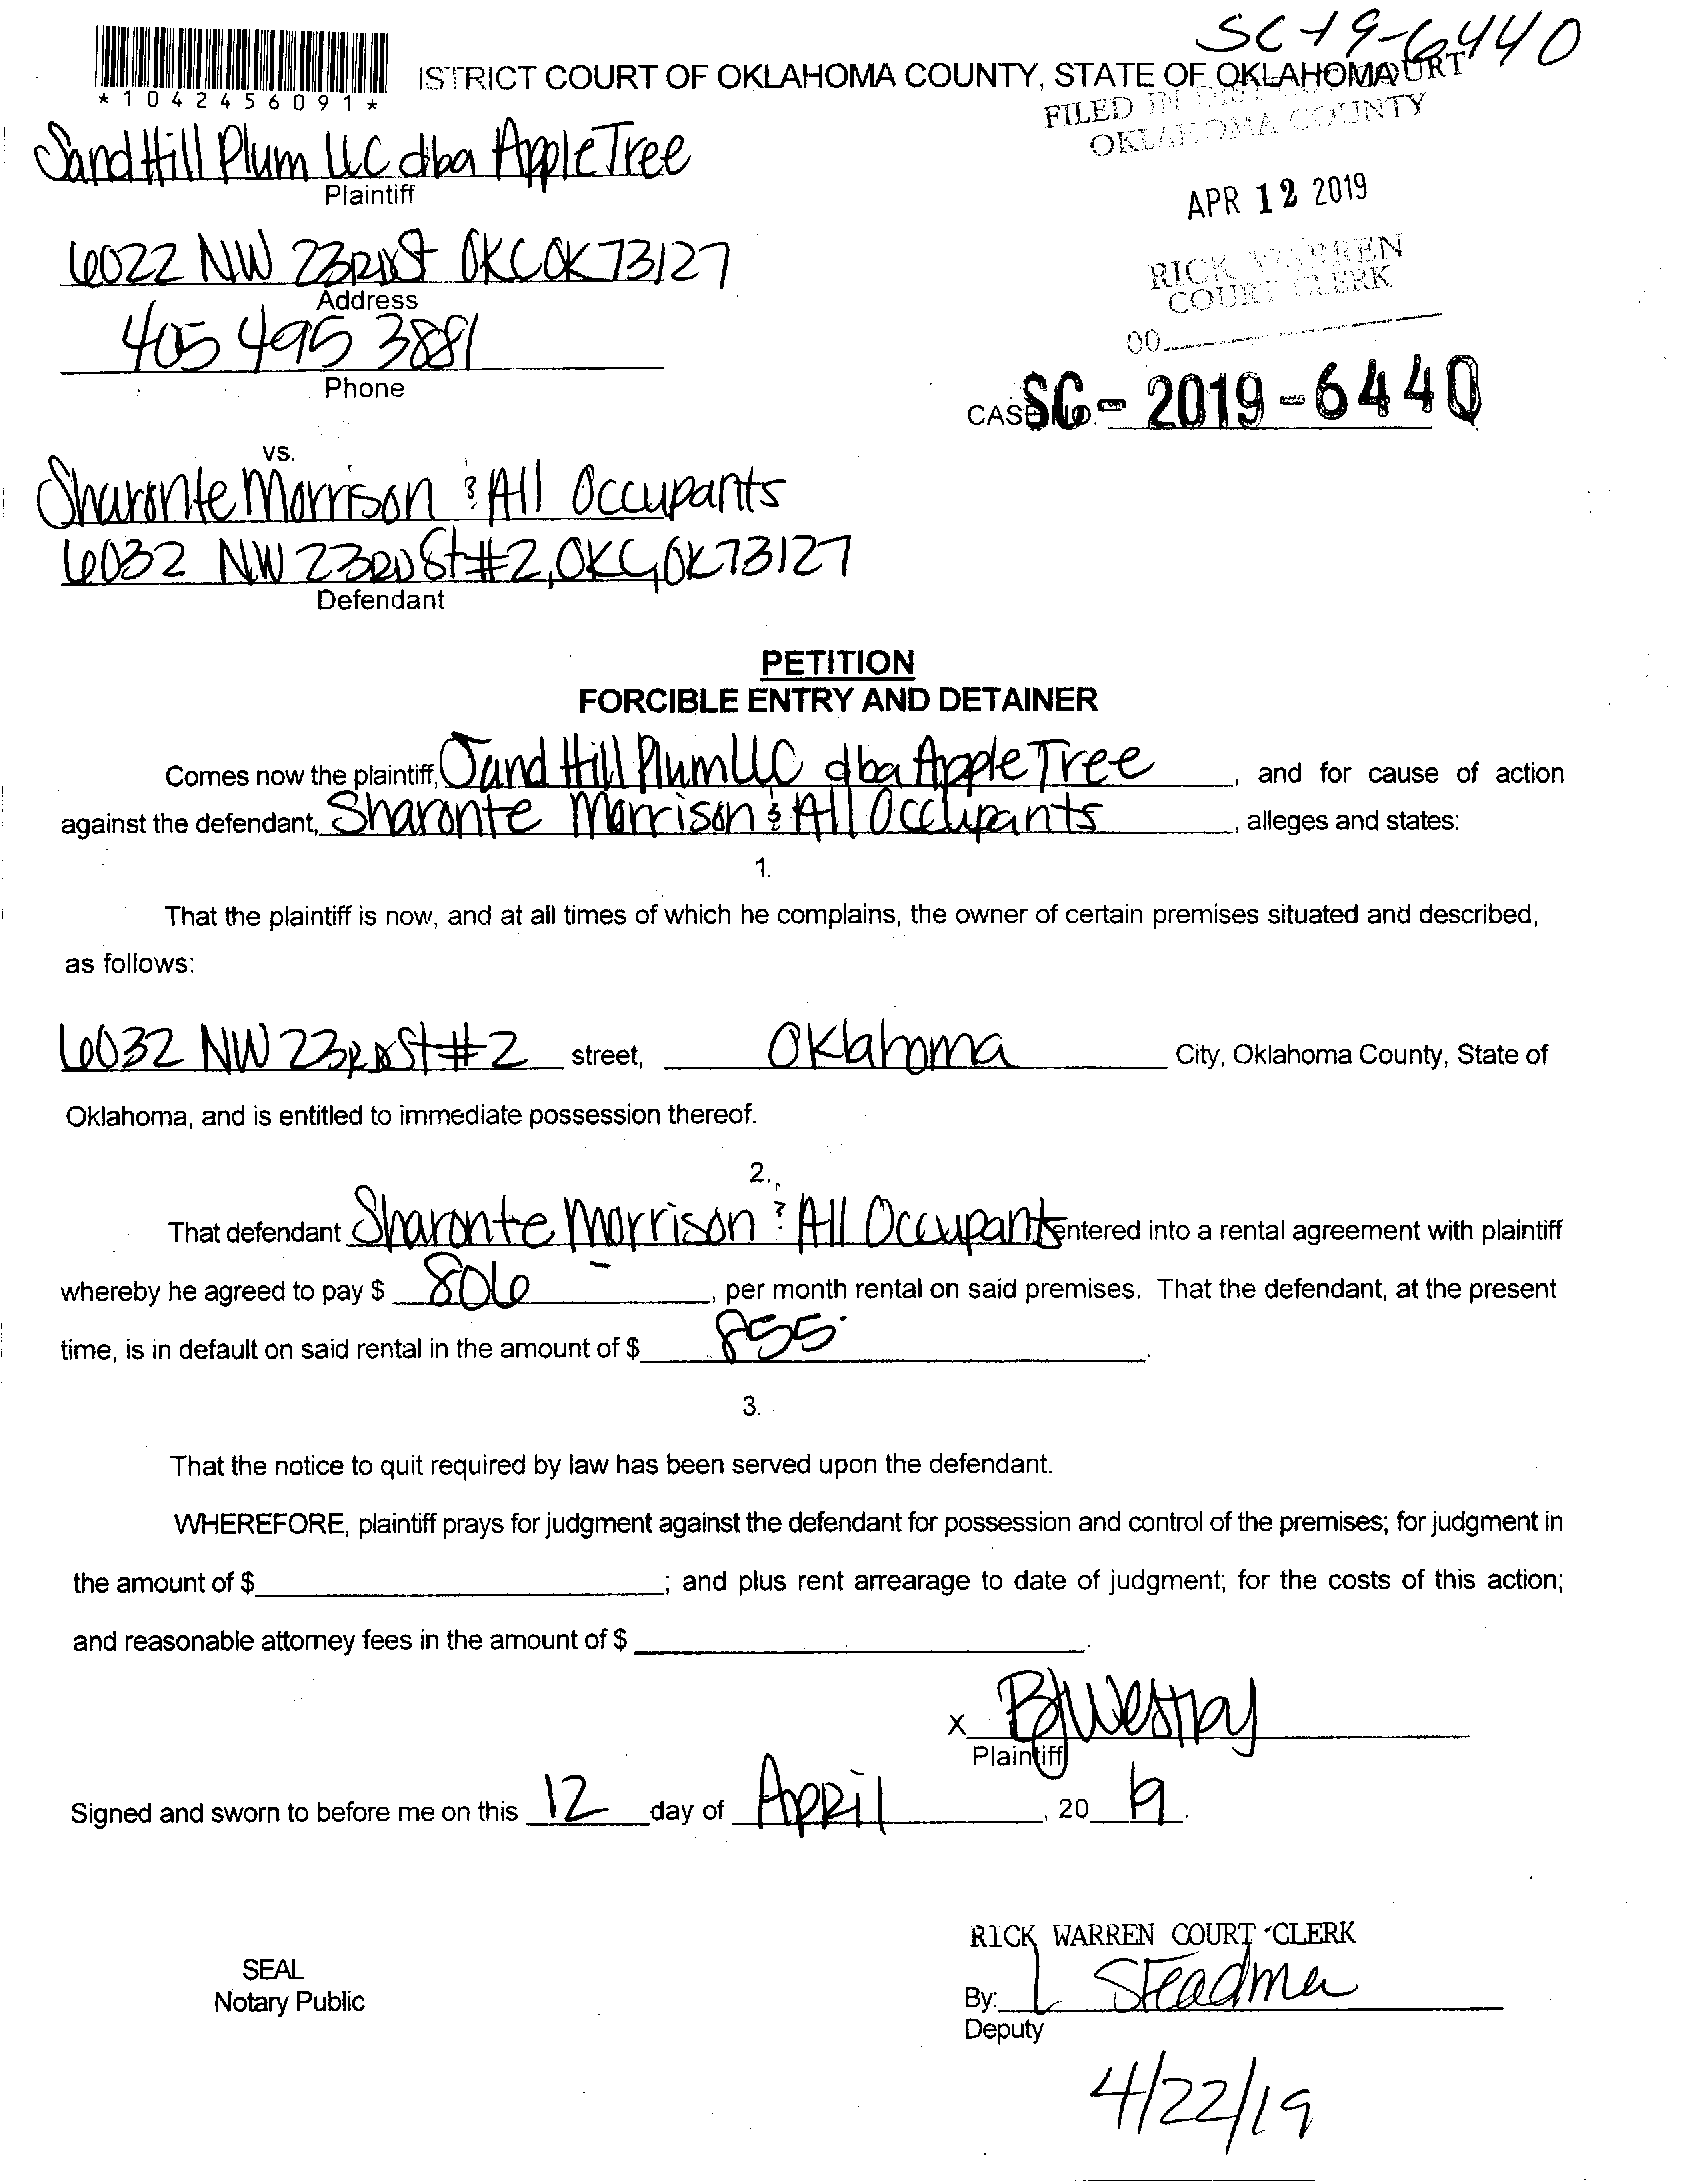 SC-19-6440
ISTRICT COURT OF OKLAHOMA COUNTY, STATE OF OKLAHOMA
*1042456091*
FILED IN DISTRICT COURT
OKLAHOMA COUNTY
Sand Hill Plum LLC dba Apple Tree
Plaintiff
APR 12 2019
6022 NW 23RD St OKC OK 73127
Address
RICK WARREN
COURT CLERK
405 495 3881
Phone
00
CASE NO. SC-2019-6440
vs.
Sharonte Morrison & All Occupants
6032 NW 23RD St #2, OKC, OK 73127
Defendant
PETITION
FORCIBLE ENTRY AND DETAINER
Comes now the plaintiff, Sand Hill Plum LLC dba Apple Tree, and for cause of action
against the defendant, Sharonte Morrison & All Occupants, alleges and states:
1.
That the plaintiff is now, and at all times of which he complains, the owner of certain premises situated and described,
as follows:
6032 NW 23RD St #2 street, Oklahoma City, Oklahoma County, State of
Oklahoma, and is entitled to immediate possession thereof.
2.
That defendant Sharonte Morrison & All Occupants entered into a rental agreement with plaintiff
whereby he agreed to pay $ 806 -, per month rental on said premises. That the defendant, at the present
time, is in default on said rental in the amount of $ 855.
3.
That the notice to quit required by law has been served upon the defendant.
WHEREFORE, plaintiff prays for judgment against the defendant for possession and control of the premises; for judgment in
the amount of $; and plus rent arrearage to date of judgment; for the costs of this action;
and reasonable attorney fees in the amount of $.
x BJWestray
Plaintiff
Signed and sworn to before me on this 12 day of APRil, 20 19.
RICK WARREN COURT CLERK
SEAL
Notary Public
By: L Steadman
Deputy
4/22/19